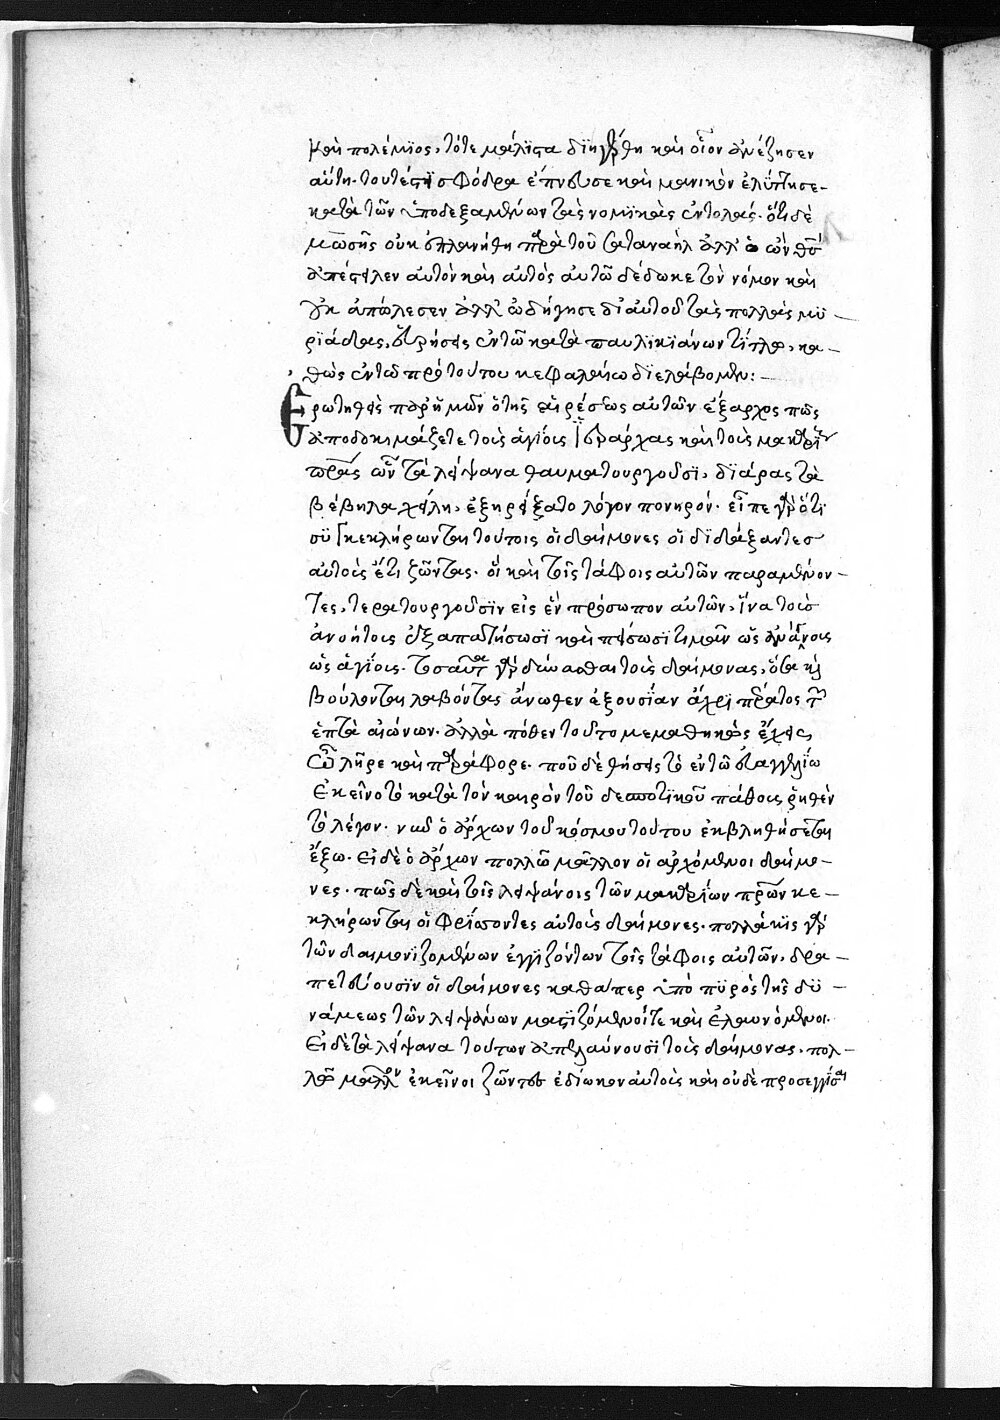 καὶ πολέμϊος, τότε μάλϊστα διηγέρθη καὶ οἷον ἀνέζησεν
αὕτη. τουτέστϊ σφόδρα ἔπνευσε καὶ μανικὸν ἐλύπησε
κατὰ τῶν ὑποδεξαμένων τὰς νομϊκὰς ἐντολάς. ὅτι δὲ
μωσῆς οὐκ ἐπλανήθη παρὰ τοῦ σαταναὴλ ἀλλ' ὁ ὢν θεὸς
ἀπέστειλεν αὐτὸν καὶ αὐτὸς αὐτῶ δέδωκε τὸν νόμον καὶ
οὐκ ἀπώλεσεν ἀλλ' ὡδήγησε δι' αὐτοῦ τὰς πολλὰς μυ
ρϊάδας, εὑρήσεις ἐν τῶ κατὰ παυλϊκϊάνων τίτλω, κα
θὼς ἐν τῶ πρὸ τούτου κεφαλαίω διελάβομεν:
Ερωτηθεὶς παρ' ἡμῶν ὁ τῆς αἱρέσεως αὐτῶν ἔξαρχος πῶς
ἀποδοκιμάζετε τοὺς ἁγίους ϊεράρχας καὶ τοὺς μακαρίους
πρας ὧν τὰ λείψανα θαυματουργοῦσϊ, διάρας τὰ
βέβηλα χείλη, ἐξηρεύξατο λόγον πονηρόν. εἶπε γὰρ ὅτι
συγκεκλήρωνται τούτοις οἱ δαίμονες οἱ δϊδάξαντες
αὐτοὺς ἔτι ζῶντας. οἳ καὶ τοῖς τάφοις αὐτῶν παραμένον
τες, τερατουργοῦσϊν εἰς ἓν πρόσωπον αὐτῶν, ἵνα τοὺς
ἀνοήτους ἐξαπατήσωσϊ καὶ πείσωσϊ τιμᾶν ὡς ἀνάγνους
ὡς ἁγίους. τοσαῦτα γὰρ δύνασθαι τοὺς δαίμονας, ὅσα καὶ
βούλονται λαβόντας ἄνωθεν ἐξουσίαν ἄχρϊ πέρατος τῶν
ἑπτὰ αἰώνων. ἀλλὰ πόθεν τοῦτο μεμαθηκὼς ἔχεις
ὦ λῆρε καὶ παράφορε. ποῦ δὲ θήσεις τὸ ἐν τῶ εὐαγγελίω
ἐκεῖνο τὸ κατὰ τὸν καιρὸν τοῦ δεσποτϊκοῦ πάθους ῥηθὲν
τὸ λέγον. νῦν ὁ ἄρχων τοῦ κόσμου τούτου ἐκβληθήσεται
ἔξω. εἰ δὲ ὁ ἄρχων πολλῶ μᾶλλον οἱ ἀρχόμενοι δαίμο
νες. πῶς δὲ καὶ τοῖς λειψάνοις τῶν μακαρίων πρων κε
κλήρωνται οἱ φρίττοντες αὐτοὺς δαίμονες. πολλάκϊς γὰρ
τῶν δαιμονϊζομένων ἐγγϊζόντων τοῖς τάφοις αὐτῶν, δρα
πετεύουσϊν οἱ δαίμονες καθάπερ ὑπὸ πυρὸς τῆς δυ
νάμεως τῶν λειψάνων μαστϊζόμενοί τε καὶ ἐλαυνόμενοι.
εἰ δὲ τὰ λείψανα τούτων ἀπελαύνουσϊ τοὺς δαίμονας, πολ
λῶ μᾶλλον ἐκεῖνοι ζῶντες ἐδίωκον αὐτοὺς καὶ οὐδὲ προσεγγίσαι